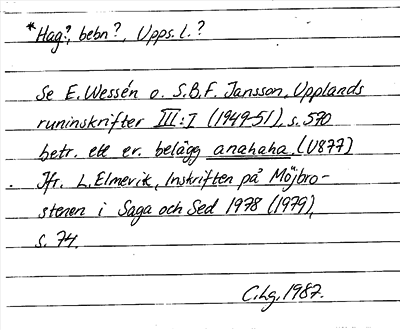 *Hag?, bebn?, Upps. l.?
Se E. Wessén o. S.B.F. Jansson, Upplands
runinskrifter III:1 (1949-51), s. 570
betr. ett ev. belägg anahaha. (U877)
Jfr. L. Elmevik, Inskriften på Möjbro-
stenen i Saga och Sed 1978 (1979),
s. 74.
C. Lg. 1987.